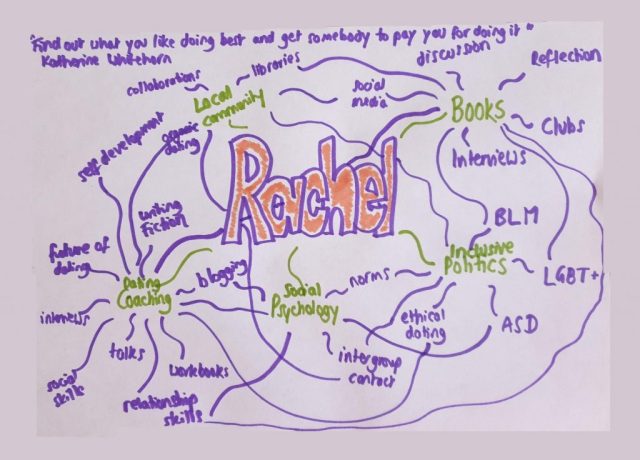 "Find out what you like doing best and get somebody to pay you for doing it"
Katherine Whitehorn
discussion
Reflection
libraries
collaborations
Local
community
social
media
BOOKS
Clubs
organic
dating
self development
Interviews
Rachel
writing
Fiction
BLM
future of
dating
Dating
Coaching
blogging
Social
Psychology
norms
Inclusive
Politics
LGBT+
interviews
ethical
dating
ASD
talks
workbooks
intergroup
contact
social
skills
relationship
skills